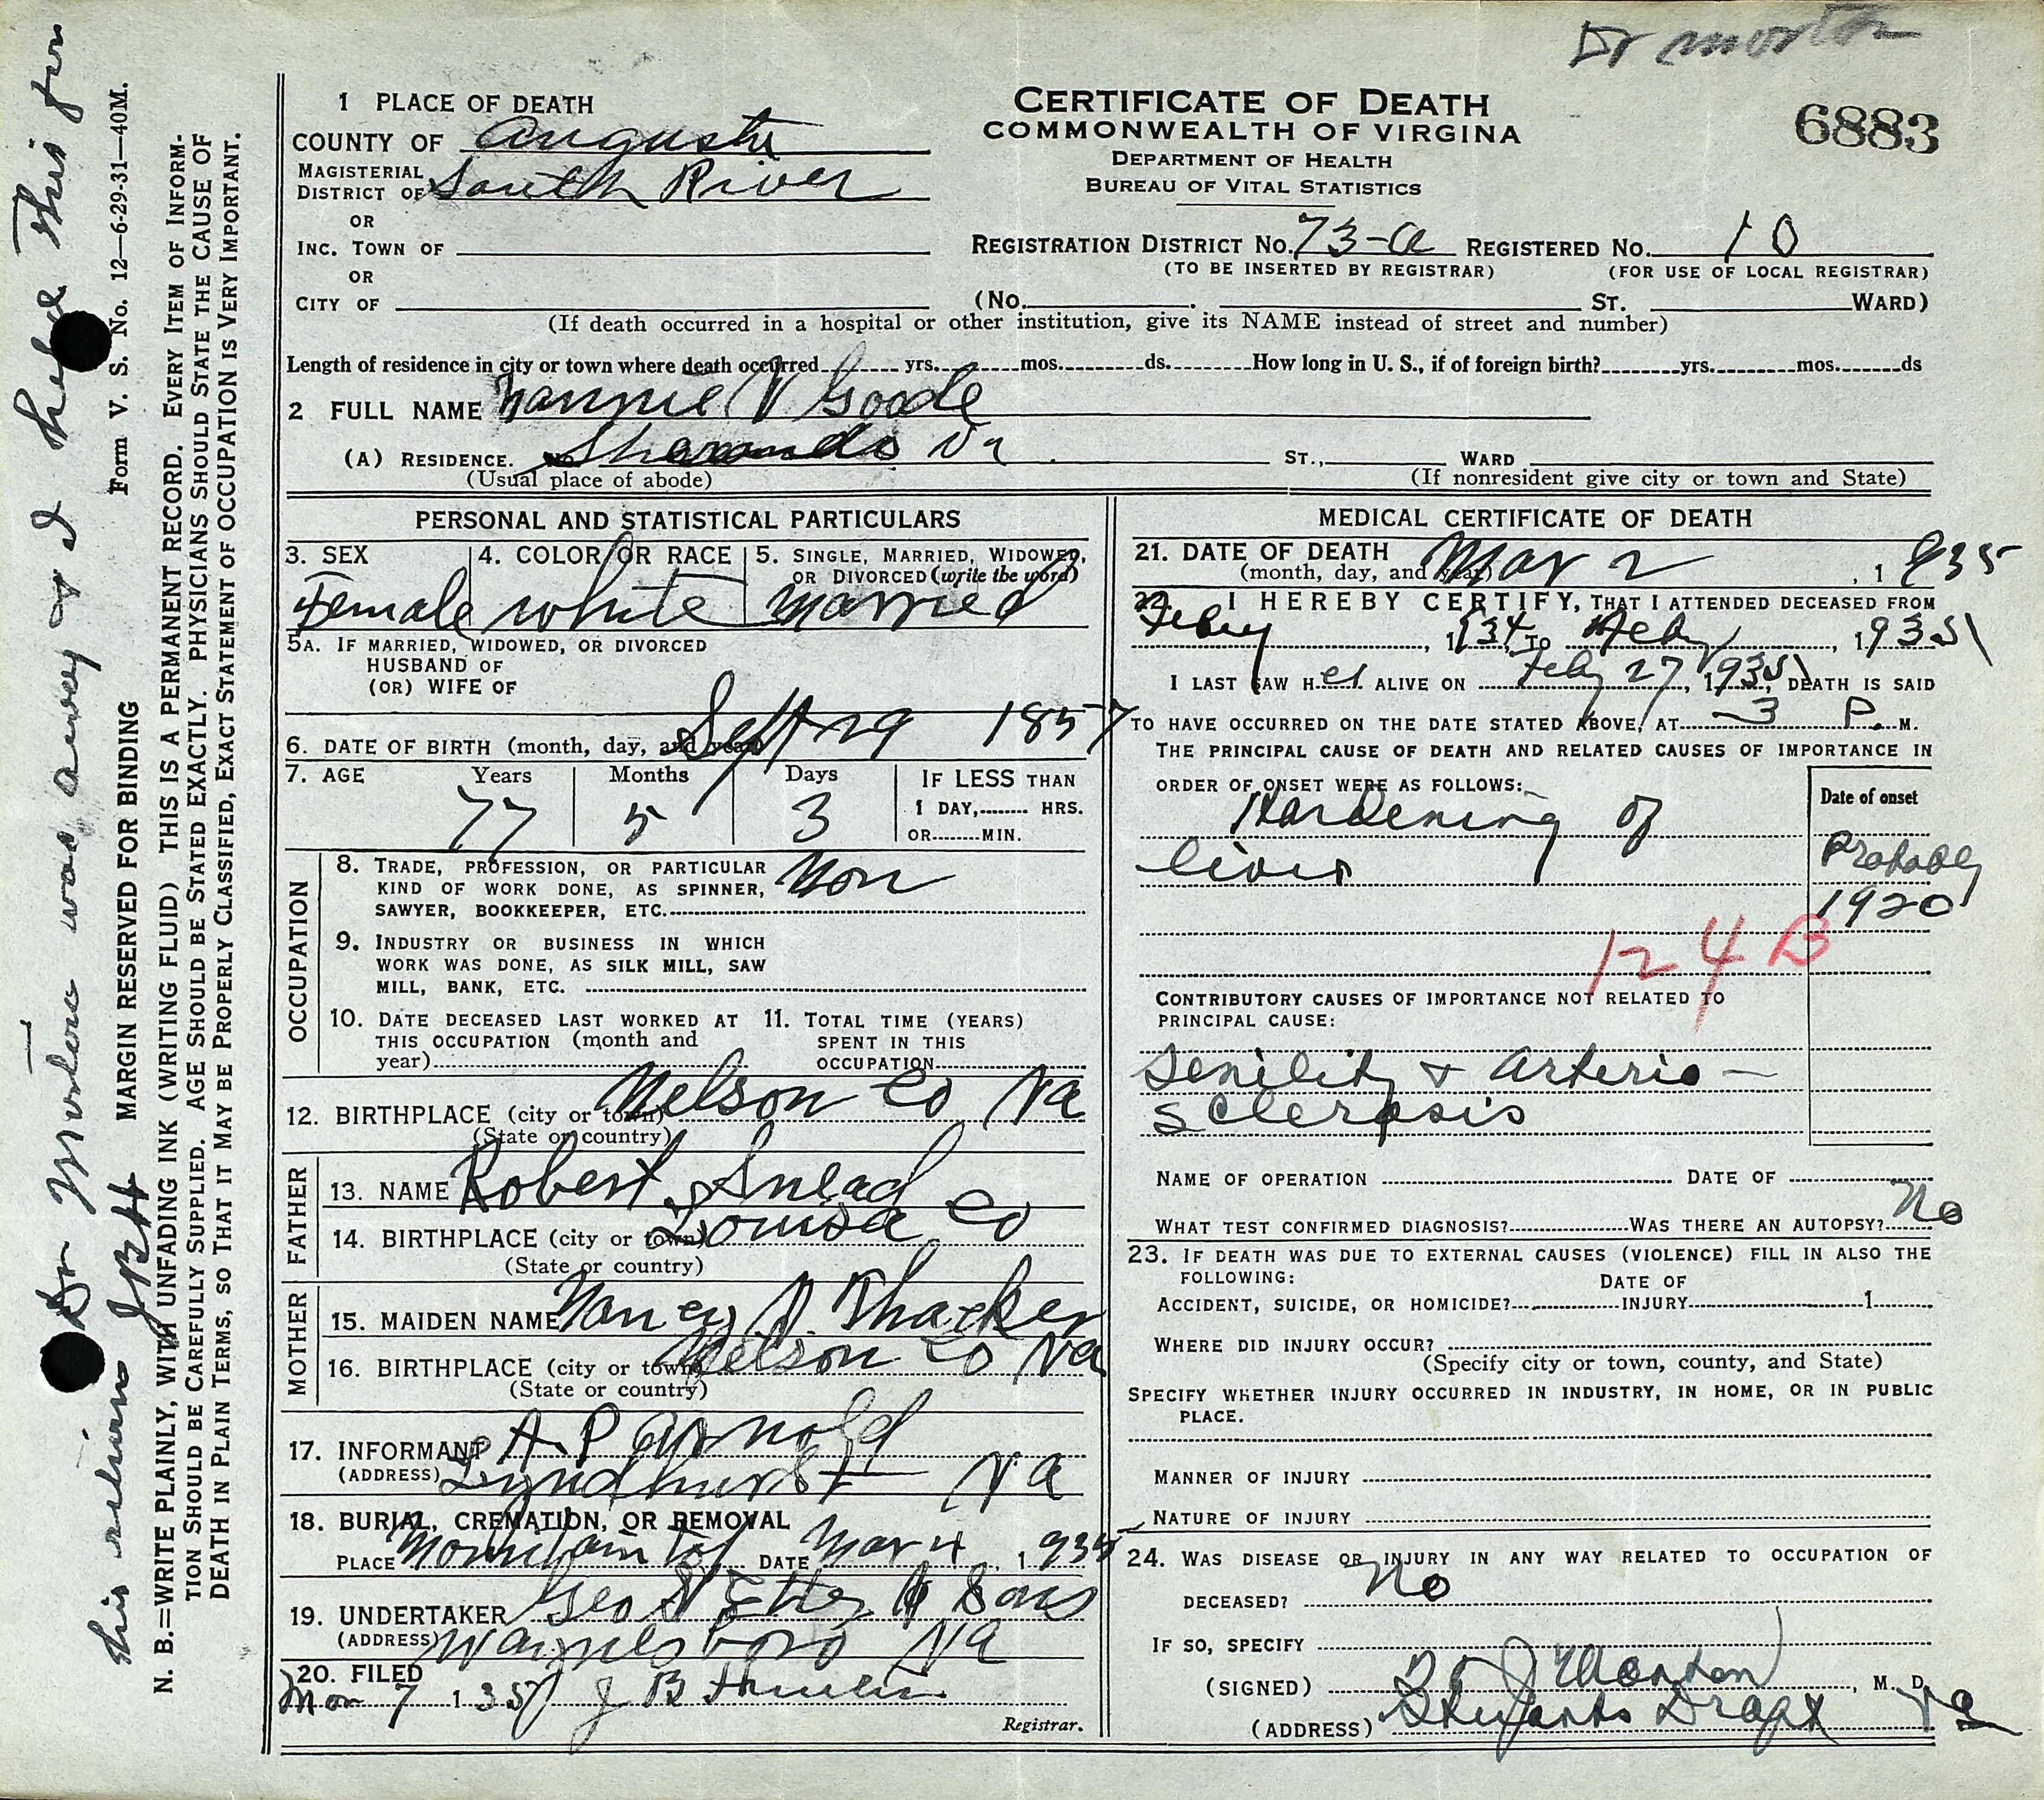 Dr Morton
1 PLACE OF DEATH
COUNTY OF Augusta
MAGISTERIAL DISTRICT OF South River
OR
INC. TOWN OF
OR
CITY OF
CERTIFICATE OF DEATH
COMMONWEALTH OF VIRGINA
DEPARTMENT OF HEALTH
BUREAU OF VITAL STATISTICS
6883
REGISTRATION DISTRICT No. 73-a REGISTERED No. 10
(TO BE INSERTED BY REGISTRAR) (FOR USE OF LOCAL REGISTRAR)
(No. ST. WARD)
(If death occurred in a hospital or other institution, give its NAME instead of street and number)
Length of residence in city or town where death occurred yrs. mos. ds. How long in U. S., if of foreign birth? yrs. mos. ds
2 FULL NAME Nannie V Goode
(A) RESIDENCE. No. Sherando Va ST., WARD
(Usual place of abode) (If nonresident give city or town and State)
PERSONAL AND STATISTICAL PARTICULARS
3. SEX 4. COLOR OR RACE 5. SINGLE, MARRIED, WIDOWED, OR DIVORCED (write the word)
Female white married
5A. IF MARRIED, WIDOWED, OR DIVORCED
HUSBAND OF
(OR) WIFE OF
6. DATE OF BIRTH (month, day, and year) Sept 29 1857
7. AGE Years Months Days IF LESS THAN
77 5 3 1 DAY, HRS.
OR MIN.
OCCUPATION
8. TRADE, PROFESSION, OR PARTICULAR
KIND OF WORK DONE, AS SPINNER,
SAWYER, BOOKKEEPER, ETC. Non
9. INDUSTRY OR BUSINESS IN WHICH
WORK WAS DONE, AS SILK MILL, SAW
MILL, BANK, ETC.
10. DATE DECEASED LAST WORKED AT
THIS OCCUPATION (month and
year)
11. TOTAL TIME (YEARS)
SPENT IN THIS
OCCUPATION
12. BIRTHPLACE (city or town) Nelson Co Va
(State or country)
FATHER
13. NAME Robert Snead
14. BIRTHPLACE (city or town) Louisa Co
(State or country)
MOTHER
15. MAIDEN NAME Nancy Thacker
16. BIRTHPLACE (city or town) Nelson Co Va
(State or country)
17. INFORMANT A. P Arnold
(ADDRESS) Lyndhurst Va
18. BURIAL, CREMATION, OR REMOVAL
PLACE Mountain top DATE Mar 4, 1935
19. UNDERTAKER Geo W Etter & Sons
(ADDRESS) Waynesboro Va
20. FILED
Mar 7 135 J B
Registrar.
MEDICAL CERTIFICATE OF DEATH
21. DATE OF DEATH
(month, day, and year) Mar 2, 1935
22. I HEREBY CERTIFY, THAT I ATTENDED DECEASED FROM
Feby, 1934, TO Feby, 1935
I LAST SAW HER ALIVE ON Feby 27, 1935, DEATH IS SAID
TO HAVE OCCURRED ON THE DATE STATED ABOVE, AT 3 P. M.
THE PRINCIPAL CAUSE OF DEATH AND RELATED CAUSES OF IMPORTANCE IN
ORDER OF ONSET WERE AS FOLLOWS:
Date of onset
Hardening of
liver
Probably
1920
124 B
CONTRIBUTORY CAUSES OF IMPORTANCE NOT RELATED TO
PRINCIPAL CAUSE:
Senility & Arterio-
sclerosis
NAME OF OPERATION DATE OF
WHAT TEST CONFIRMED DIAGNOSIS? WAS THERE AN AUTOPSY? No
23. IF DEATH WAS DUE TO EXTERNAL CAUSES (VIOLENCE) FILL IN ALSO THE
FOLLOWING: DATE OF
ACCIDENT, SUICIDE, OR HOMICIDE? INJURY 1
WHERE DID INJURY OCCUR?
(Specify city or town, county, and State)
SPECIFY WHETHER INJURY OCCURRED IN INDUSTRY, IN HOME, OR IN PUBLIC
PLACE.
MANNER OF INJURY
NATURE OF INJURY
24. WAS DISEASE OR INJURY IN ANY WAY RELATED TO OCCUPATION OF
DECEASED? No
IF SO, SPECIFY
(SIGNED) J Morton, M. D.
(ADDRESS) Stuarts Draft Va
Form V. S. No. 12—6-29-31—40M.
MARGIN RESERVED FOR BINDING
N. B.=WRITE PLAINLY, WITH UNFADING INK (WRITING FLUID) THIS IS A PERMANENT RECORD. EVERY ITEM OF INFORM-
TION SHOULD BE CAREFULLY SUPPLIED. AGE SHOULD BE STATED EXACTLY. PHYSICIANS SHOULD STATE THE CAUSE OF
DEATH IN PLAIN TERMS, SO THAT IT MAY BE PROPERLY CLASSIFIED, EXACT STATEMENT OF OCCUPATION IS VERY IMPORTANT.
Dr Morton was away & I held this for
his return JBH